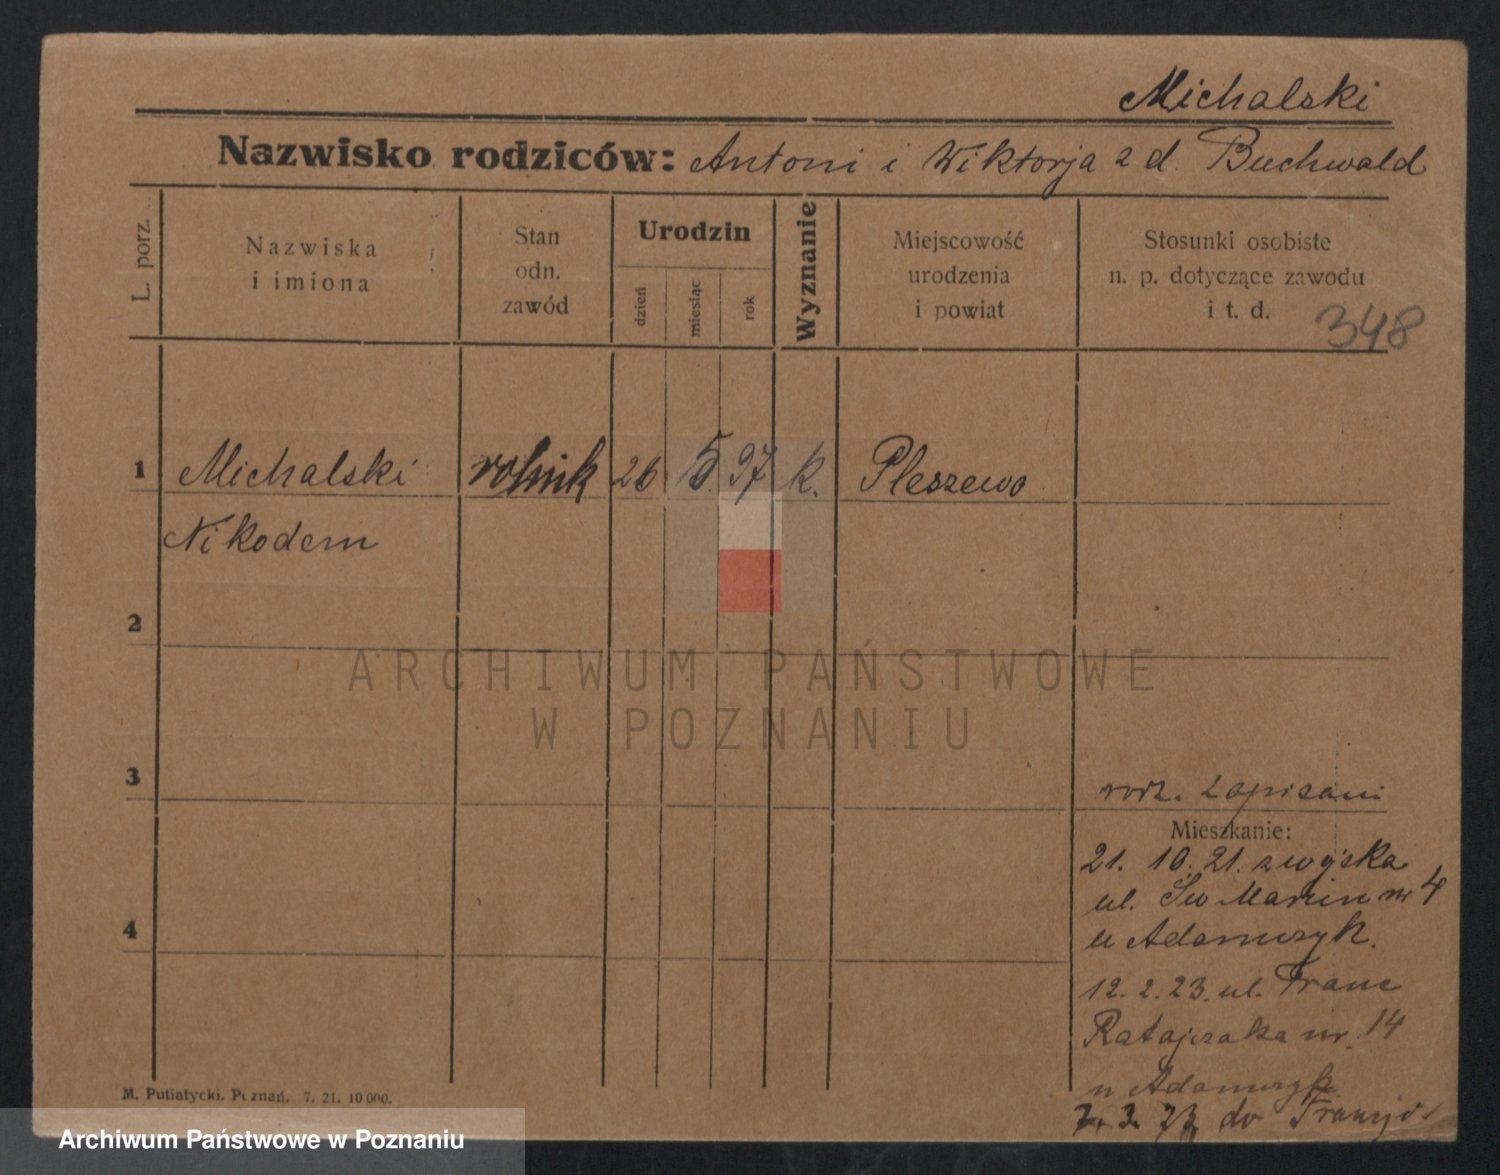 Michalski
Nazwisko rodziców: Antoni i Wiktorja z d. Buchwald
L. porz.
Nazwiska
i imiona
Stan
odn.
zawód
Urodzin
dzień
miesiąc
rok
Wyznanie
Miejscowość
urodzenia
i powiat
Stosunki osobiste
n. p. dotyczące zawodu
i t. d.
348
1 Michalski rolnik 26 5 97 k. Pleszewo
Nikodem
2
3
rodz. zapisani
Mieszkanie:
21. 10. 21. z wojska
ul. Św Marcin nr 4
u Adamczyk.
4
12. 2. 23. ul. Franc
Ratajczaka nr. 14
u Adamczyk
7. 3. 23 do Francji
M. Putiatycki. Poznań. 7. 21. 10 000.
ARCHIWUM PAŃSTWOWE
W POZNANIU
Archiwum Państwowe w Poznaniu